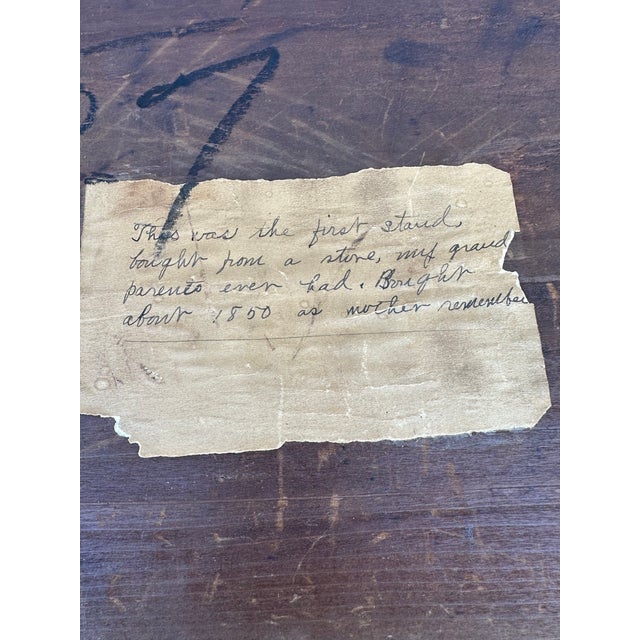 7
This was the first stand,
bought from a store, my grand
parents ever had. Bought
about 1850 as mother remember